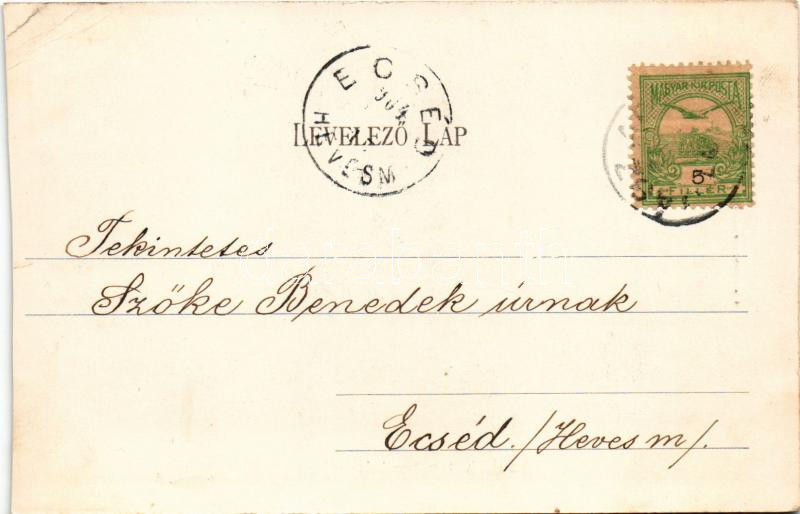 ECSÉD
904
HEVES M
LEVELEZŐ LAP
MAGYAR KIR. POSTA
5
FILLÉR
Tekintetes
Szőke Benedek úrnak
Ecséd. /Heves m/.